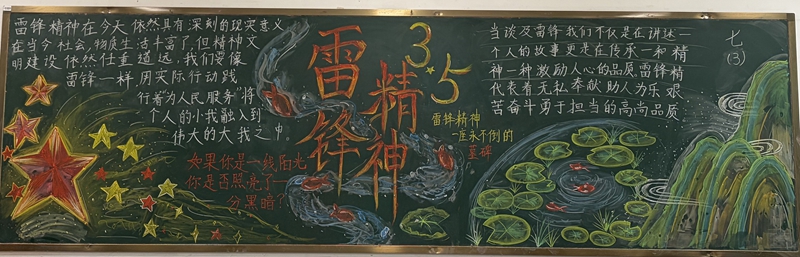 雷锋精神在今天依然具有深刻的现实意义
在当今社会,物质生活丰富了,但精神文
明建设依然任重道远,我们要像
雷锋一样,用实际行动践
行着"为人民服务"将
个人的小我融入到
伟大的大我之中
如果你是一线阳光
你是否照亮了一
分黑暗?
雷锋
精神
3.5
雷锋精神
一座永不倒的
丰碑
当谈及雷锋我们不仅是在讲述一
个人的故事更是在传承一种精
神一种激励人心的品质雷锋精
代表着无私奉献助人为乐艰
苦奋斗勇于担当的高尚品质
七
(3)